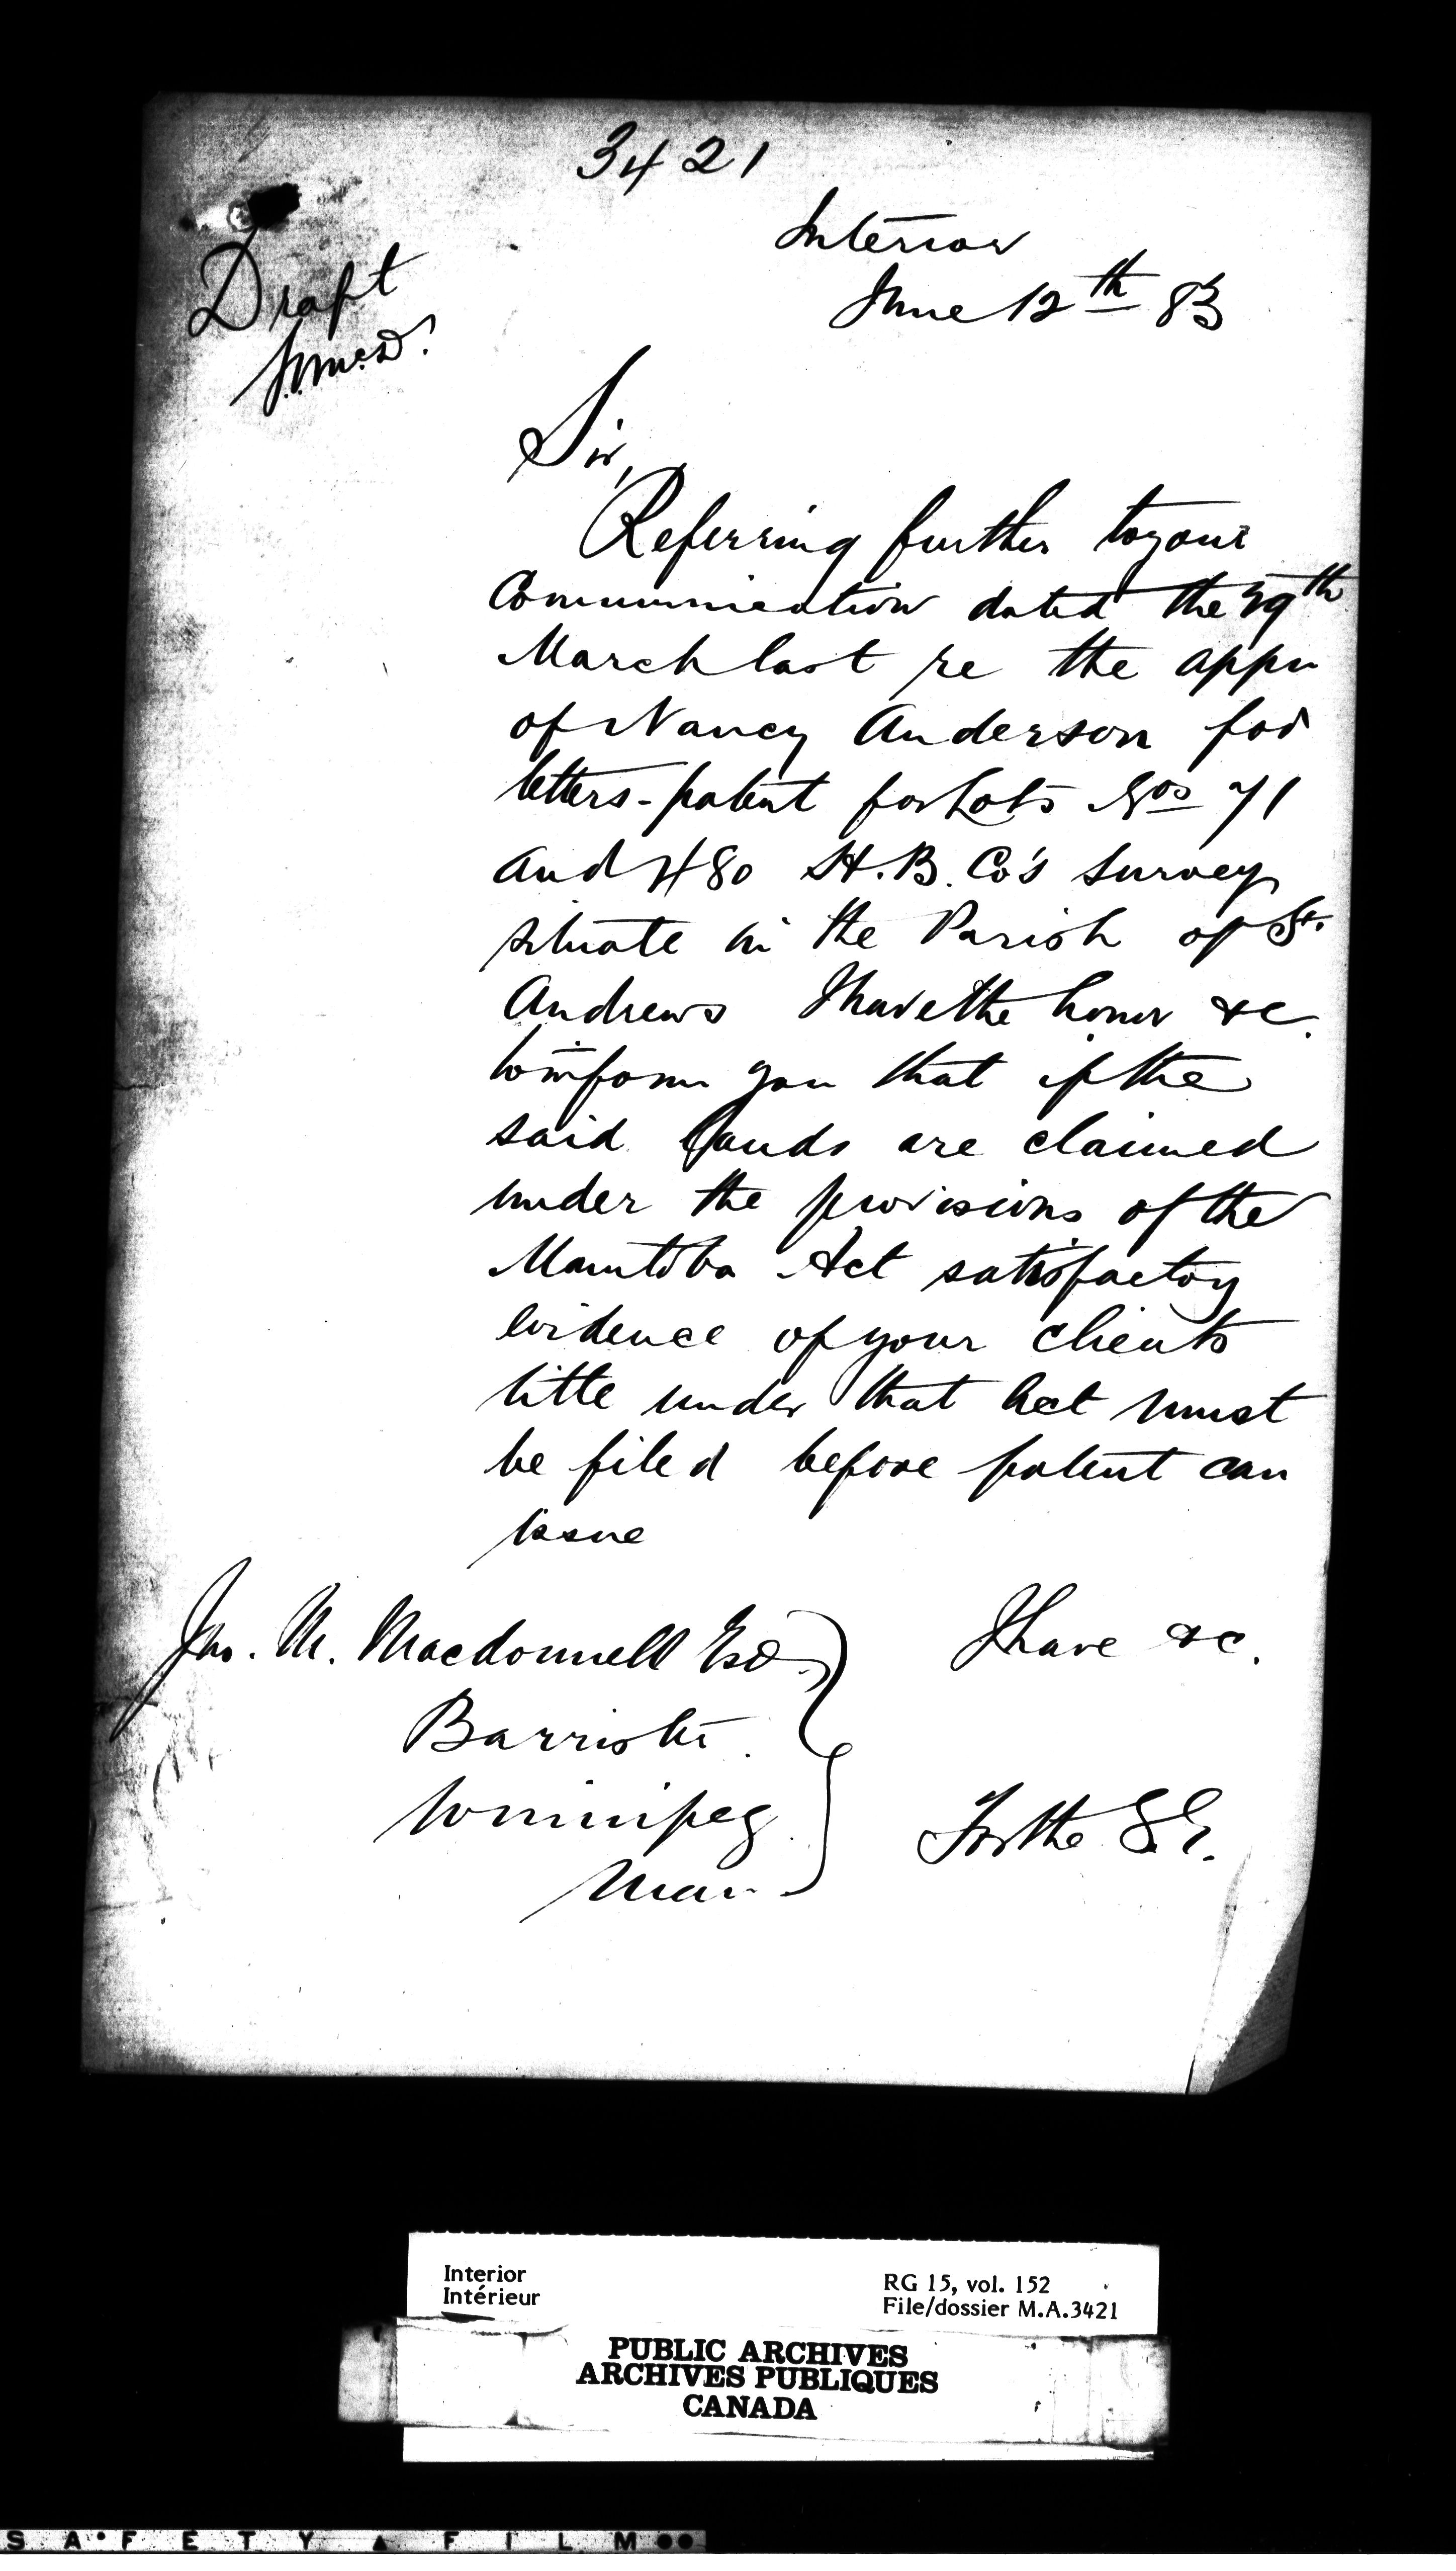 3421
Interior
June 12th 83
Draft
Sir,
Referring further to your
Communication dated the 29th
March last re the appn
of Nancy Anderson for
letters-patent for Lots Nos 71
and 480 H.B. Co's Survey
situate in the Parish of St.
Andrews I have the honor &c.
to inform you that if the
said lands are claimed
under the provisions of the
Manitoba Act satisfactory
evidence of your clients
title under that Act must
be filed before patent can
issue
I have &c.
Jno. M. Macdonnell Esq.
Barrister.
Winnipeg.
Man.
For the S.G.
Interior
Intérieur
RG 15, vol. 152
File/dossier M.A.3421
PUBLIC ARCHIVES
ARCHIVES PUBLIQUES
CANADA
SAFETY FILM